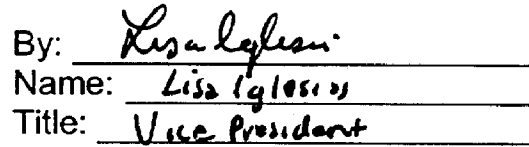 By: Lisa Iglesias
Name: Lisa Iglesias
Title: Vice President